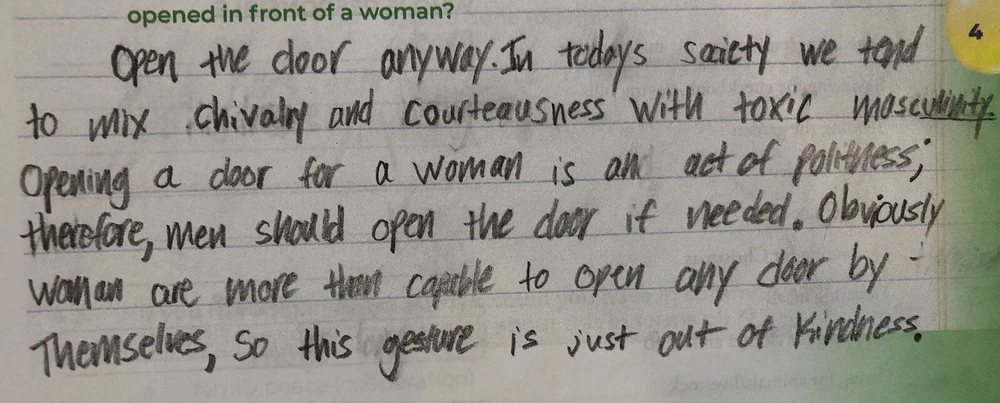 opened in front of a woman?
4
Open the door anyway. In todays saciety we tend
to mix chivalry and courteausness with toxic masculinity.
Opening a door for a woman is an act of politness;
therefore, men should open the door if needed. Obviously
woman are more then capable to open any door by -
Themselves, so this gesture is just out of kindness.